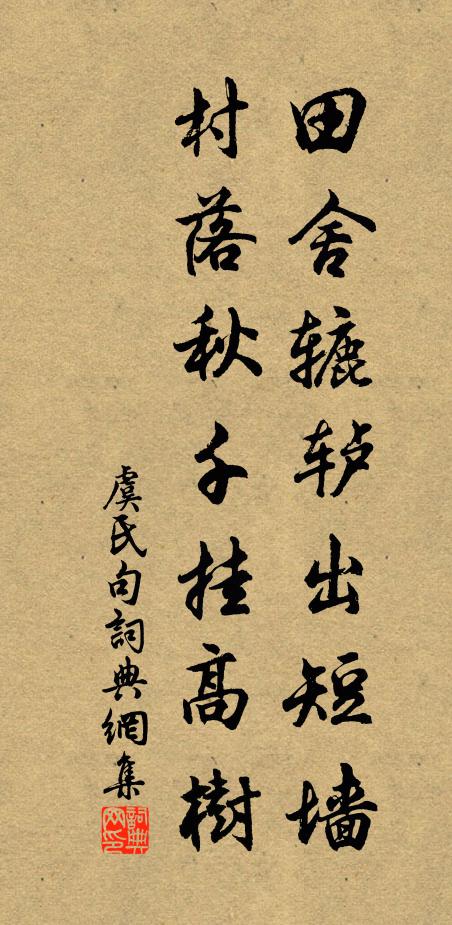 田舍辘轳出短墙
村落秋千挂高樹
虞氏句詞典網集
詞典
网印